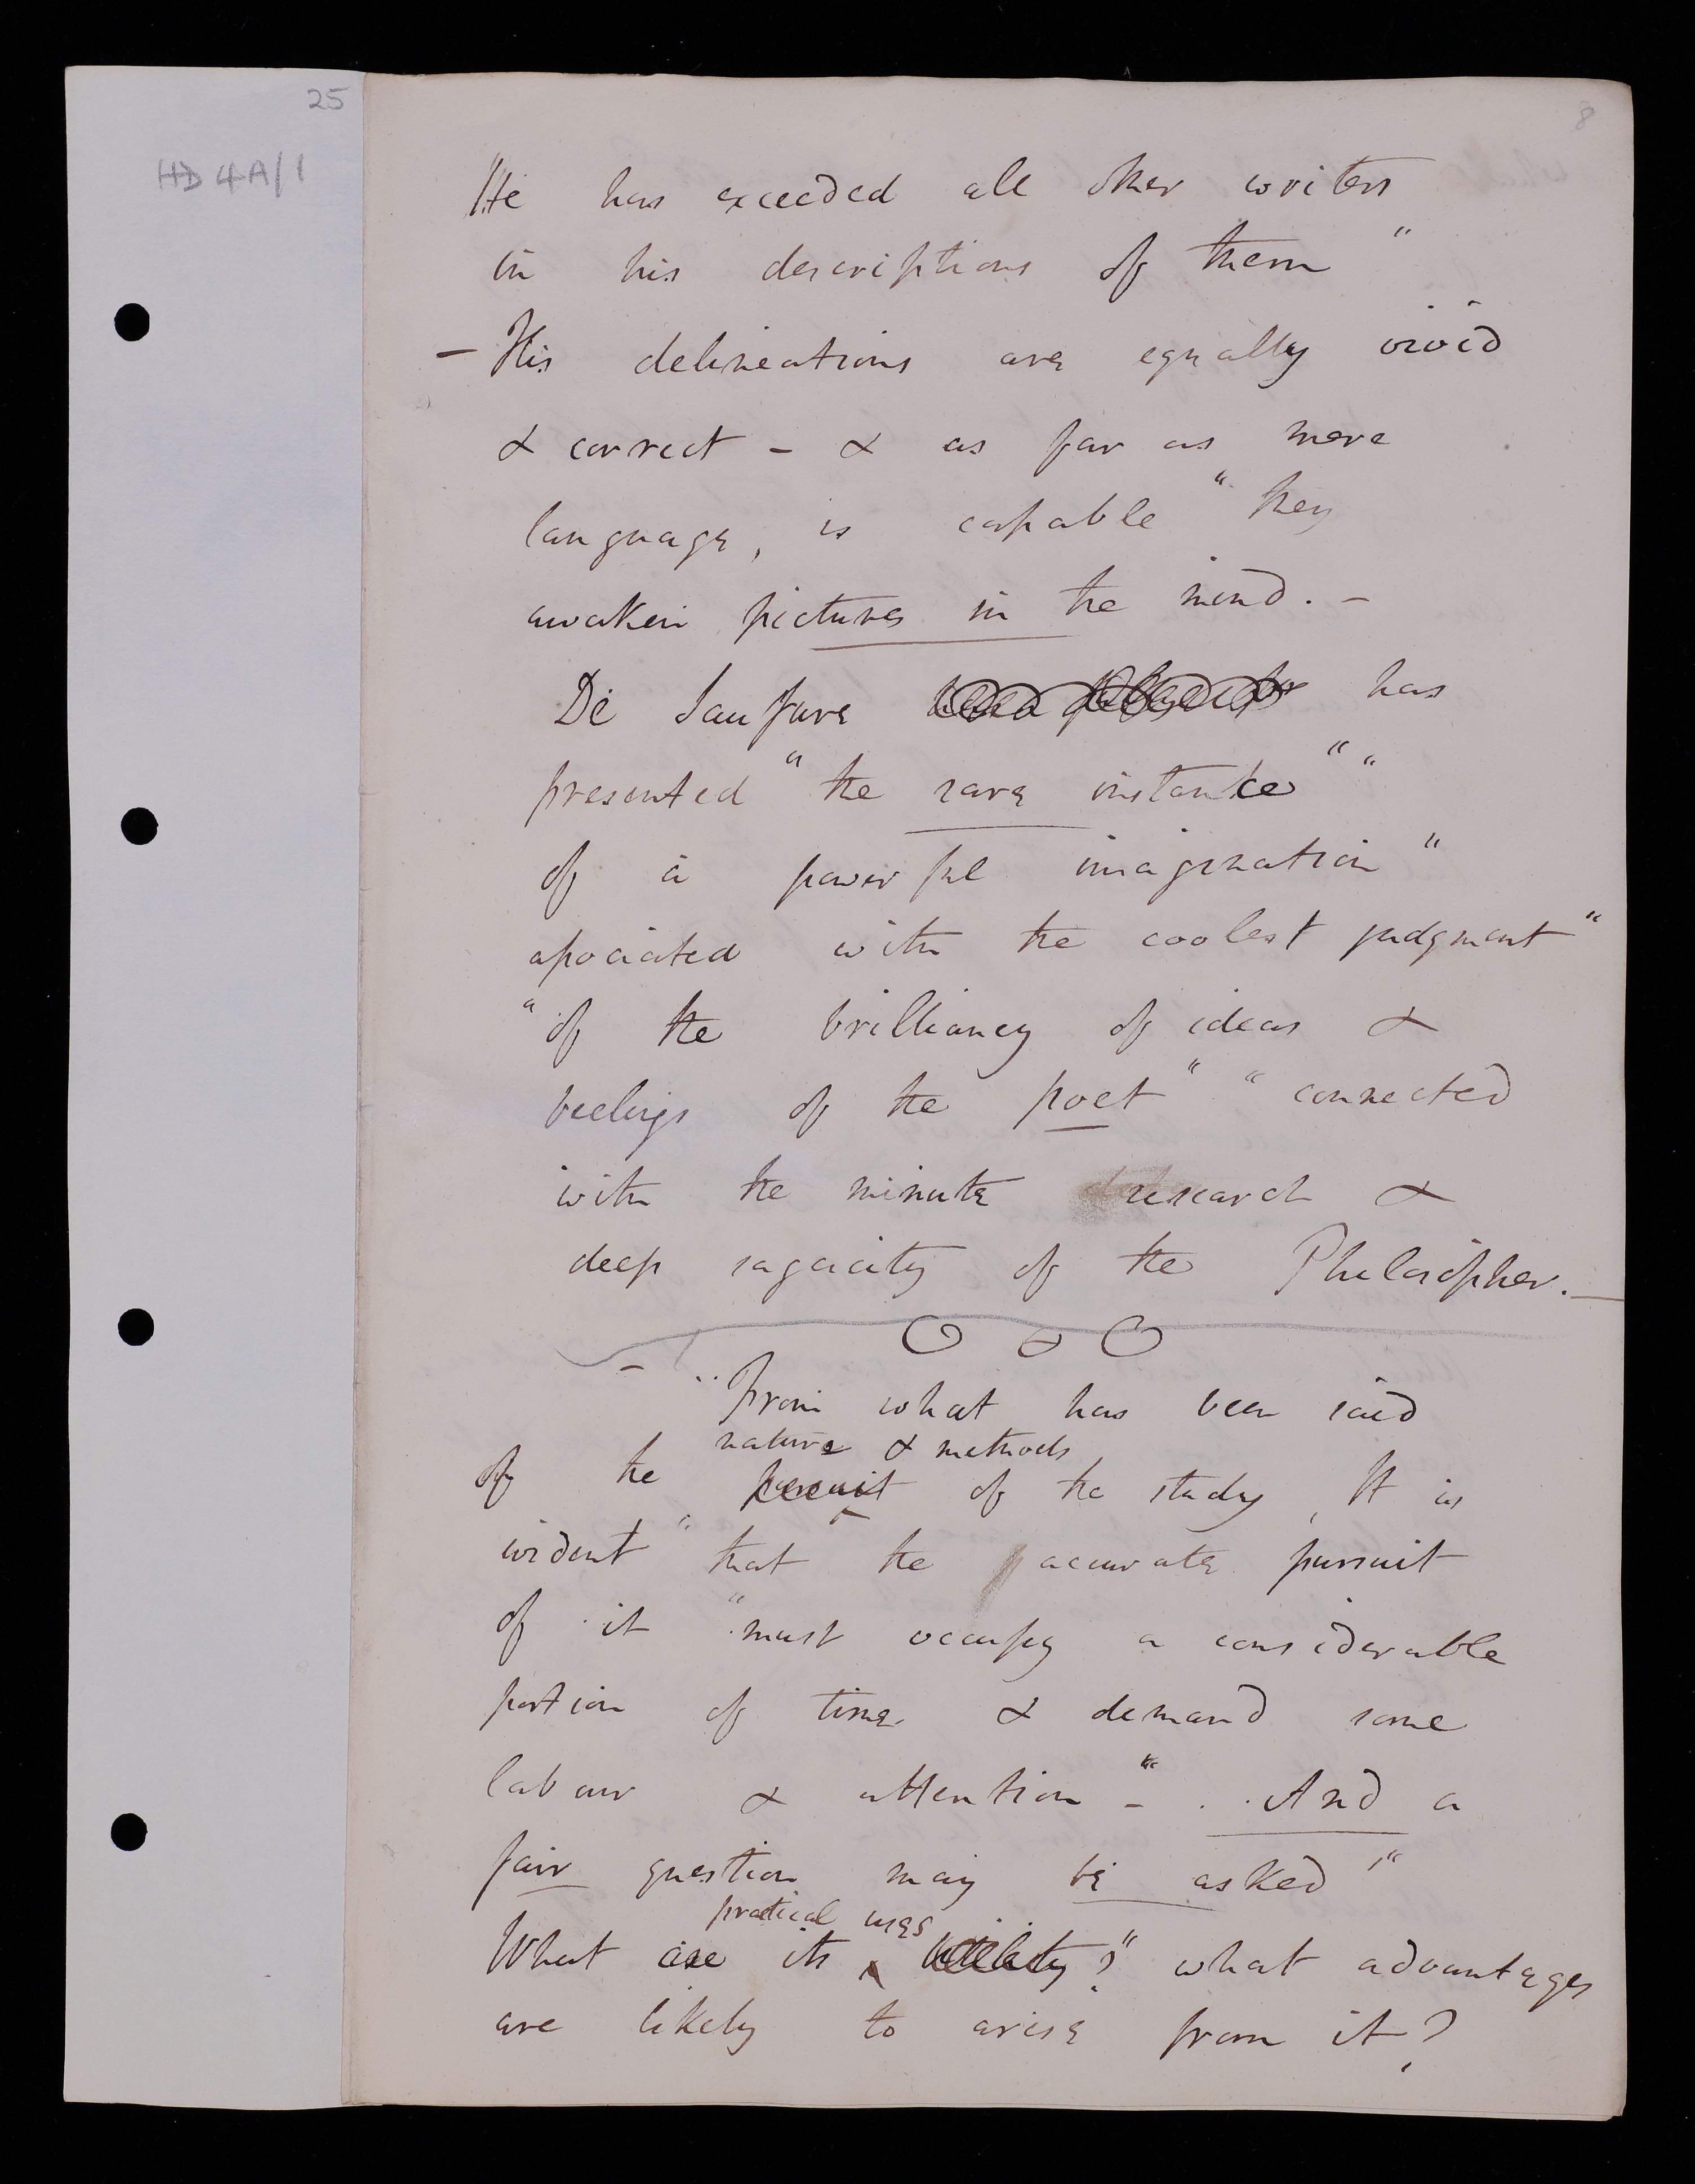 25
8
HD 4A/1
"He has exceeded all other writers
in his descriptions of them "
– His delineations are equally vivid
& correct – & as far as mere
language, is capable " they
awaken pictures in the mind. –
De Saussure has
presented " the rare instance " "
of a powerful imagination "
associated with the coolest judgment "
" of the brilliancy of ideas &
feelings of the poet " " connected
with the minute research &
deep sagacity of the Philosopher. –
– " From what has been said
nature & methods
of the pursuit of the study, It is
evident " that the accurate pursuit
of it " must occupy a considerable
portion of time & demand some
labour & attention – " . . And a
fair question may be asked "
practical uses
What are its utility ? " what advantages
are likely to arise from it ?